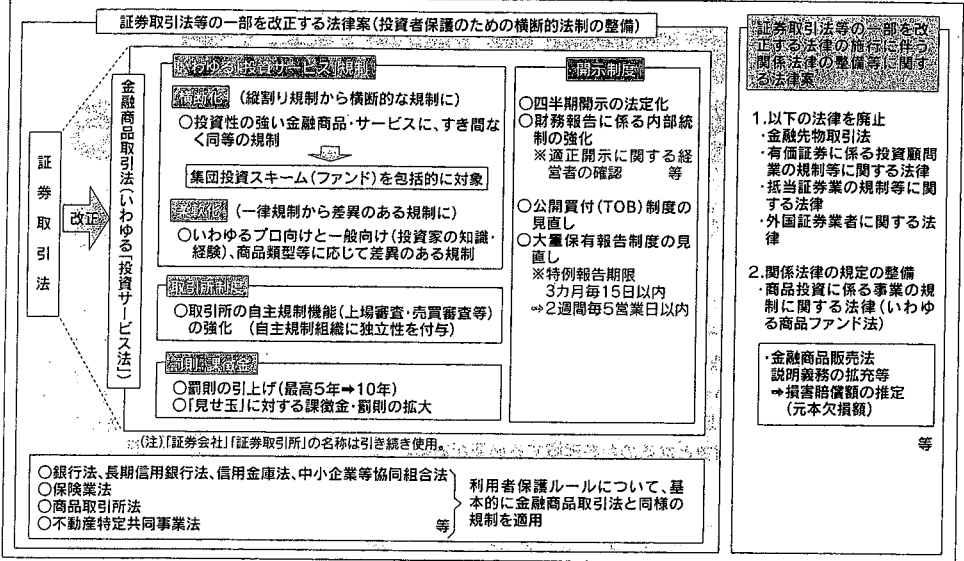 証券取引法等の一部を改正する法律案(投資者保護のための横断的法制の整備)
証券取引法
改正
金融商品取引法(いわゆる「投資サービス法」)
いわゆる「投資サービス」規制
横断化 (縦割り規制から横断的な規制に)
○投資性の強い金融商品・サービスに、すき間な
く同等の規制
集団投資スキーム(ファンド)を包括的に対象
柔軟化 (一律規制から差異のある規制に)
○いわゆるプロ向けと一般向け(投資家の知識・
経験)、商品類型等に応じて差異のある規制
取引所制度
○取引所の自主規制機能(上場審査・売買審査等)
の強化 (自主規制組織に独立性を付与)
罰則・課徴金
○罰則の引上げ(最高5年➡10年)
○「見せ玉」に対する課徴金・罰則の拡大
開示制度
○四半期開示の法定化
○財務報告に係る内部統
制の強化
※適正開示に関する経
営者の確認 等
○公開買付(TOB)制度の
見直し
○大量保有報告制度の見
直し
※特例報告期限
3カ月毎15日以内
⇒2週間毎5営業日以内
(注)「証券会社」「証券取引所」の名称は引き続き使用。
○銀行法、長期信用銀行法、信用金庫法、中小企業等協同組合法
○保険業法
○商品取引所法
○不動産特定共同事業法 等
利用者保護ルールについて、基
本的に金融商品取引法と同様の
規制を適用
証券取引法等の一部を改
正する法律の施行に伴う
関係法律の整備等に関す
る法律案
1.以下の法律を廃止
・金融先物取引法
・有価証券に係る投資顧問
業の規制等に関する法律
・抵当証券業の規制等に関
する法律
・外国証券業者に関する法
律
2.関係法律の規定の整備
・商品投資に係る事業の規
制に関する法律(いわゆ
る商品ファンド法)
・金融商品販売法
説明義務の拡充等
➡損害賠償額の推定
(元本欠損額)
等